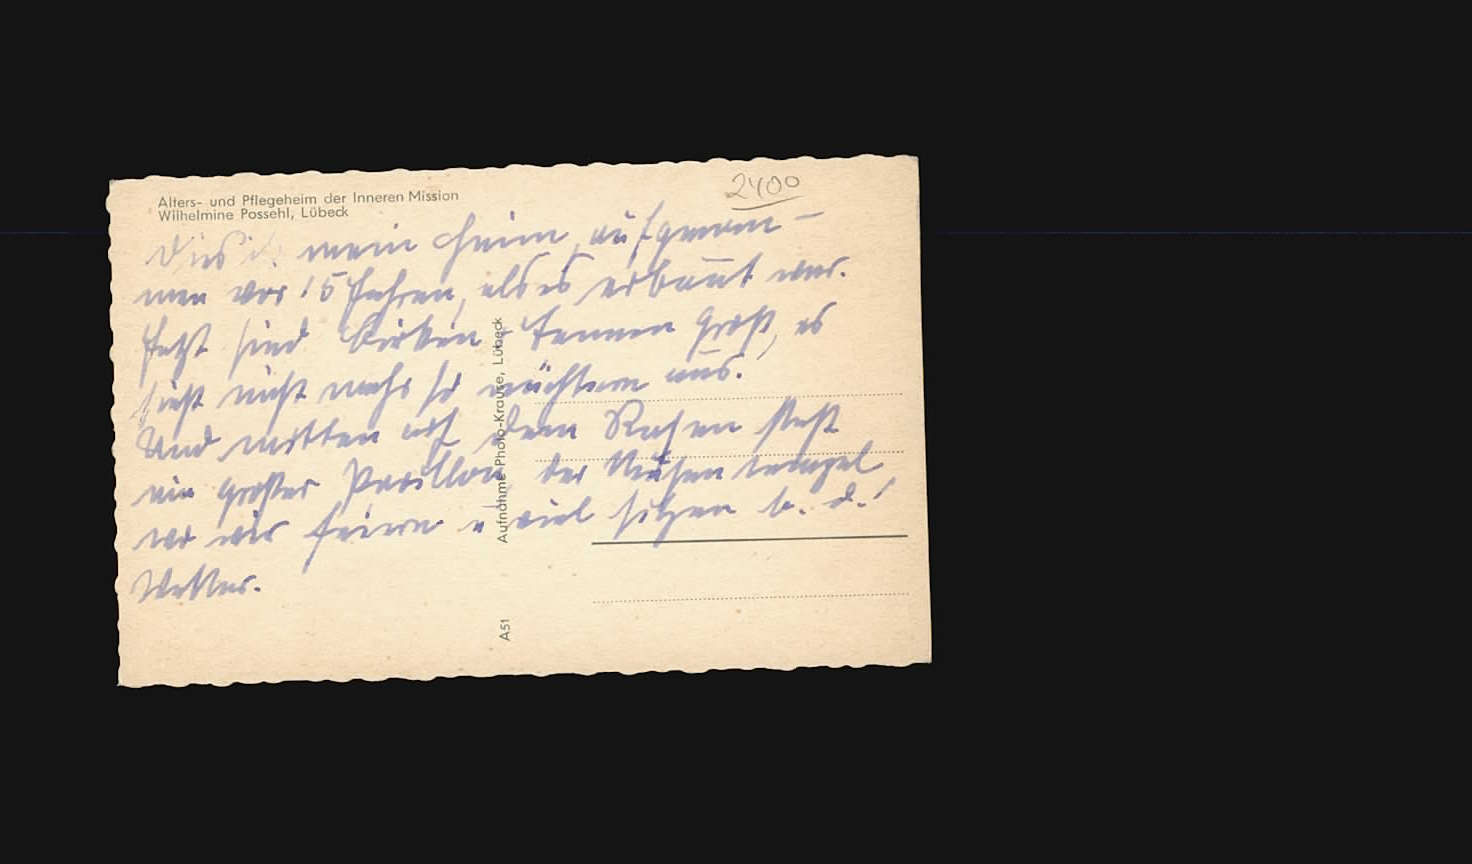 Alters- und Pflegeheim der Inneren Mission
Wilhelmine Possehl, Lübeck
2400
Dies i. mein Heim, aufgenom-
men vor 15 Jahren, als es erbaut war.
Jetzt sind Birken + Tannen groß, es
sieht nicht mehr so nüchtern aus.
Und mitten auf dem Rasen steht
ein großer Pavillon, der Musentempel
wo wir feiern u viel sitzen b. d.
Wetter.
Aufnahme Photo-Krause, Lübeck
A51